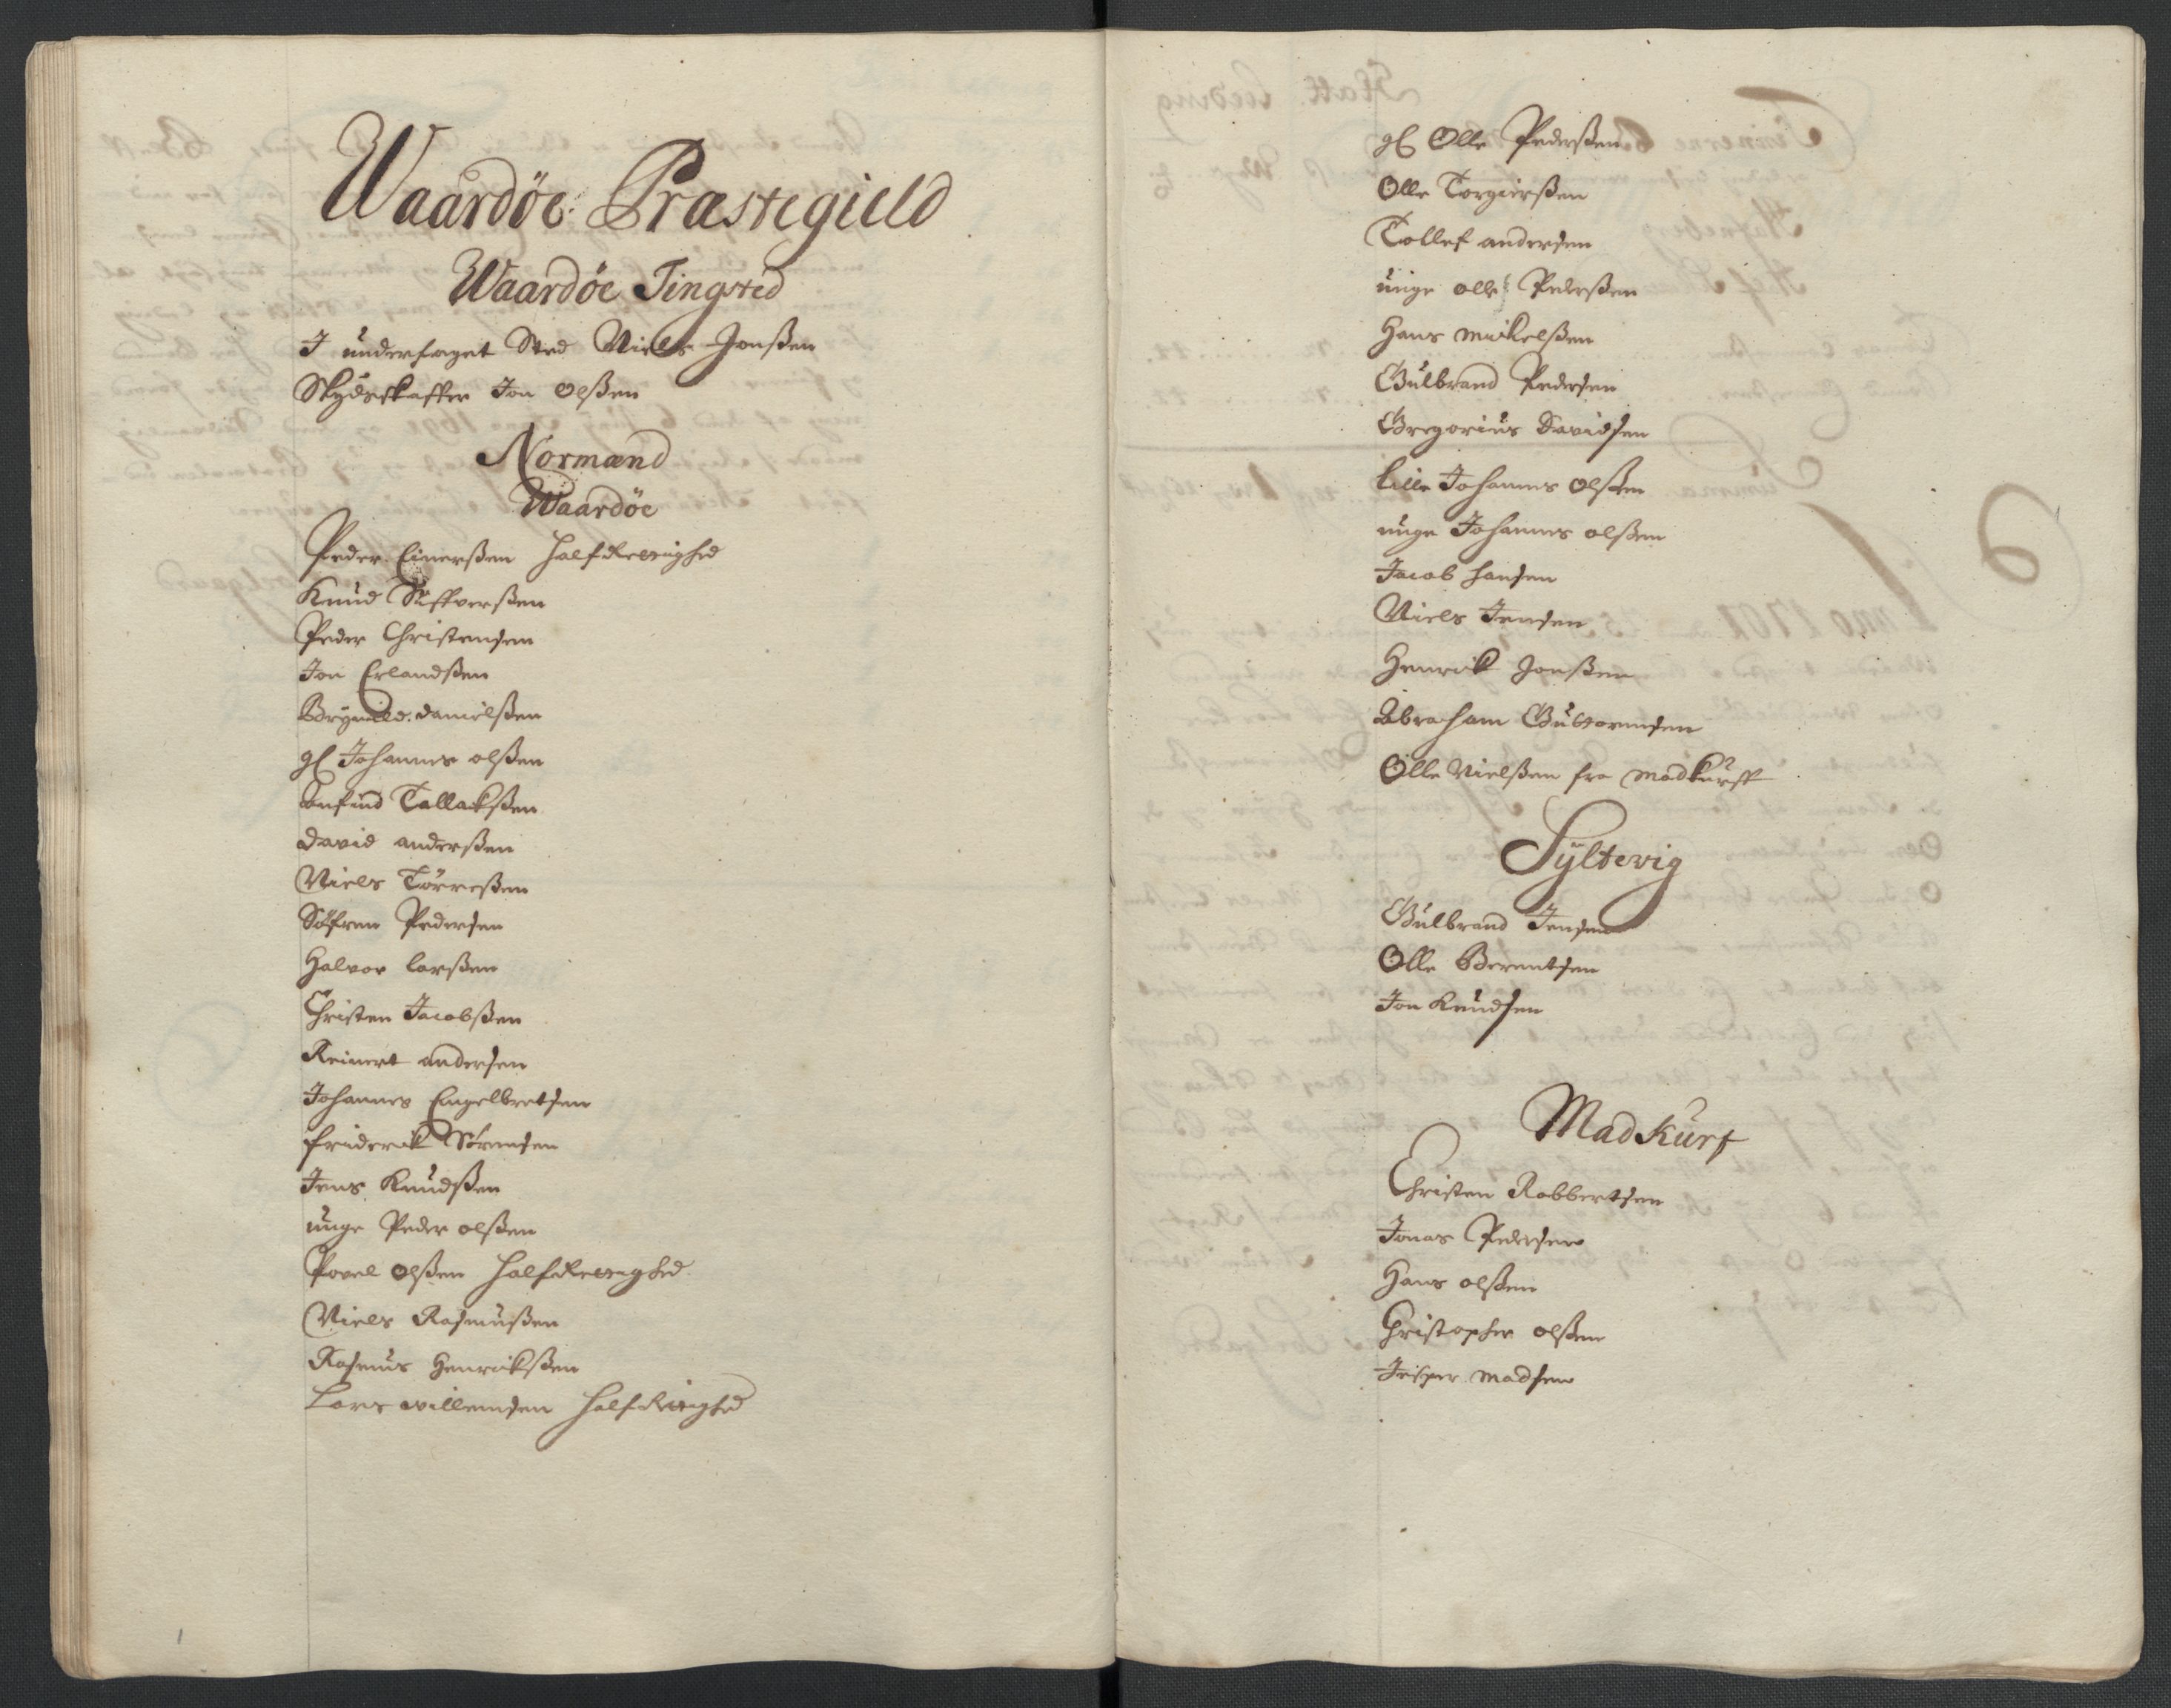 Waardöe Præstegield
Waardöe Tingsted
I underfoget Sted Niels Jonßen
Skydsskaffer Jon Olßen
Normænd
Waardöe
Peder Einerßen half Revighed
Knud Siffverßen
Peder Christensen
Jon Erlandßen
Brynild danielßen
gl Johannes olßen
Anfind Tallackßen
david anderßen
Niels Törreßen
Söfren Pedersen
Halvor larßen
Christen Jacobßen
Reinert andersen
Johannes Engelbretsen
friderich Sörensen
Jens Knudßen
unge Peder olßen
Povel olßen half Revighed
Niels Rasmußen
Rasmus Henrickßen
Lars willemsen half Revighed
gl Olle Pederßen
Olle Torgierßen
Tollef andersen
unge olle Pederßen
Hans Mickelßen
Gulbrand Pedersen
Gregorius Davidsen
lille Johannes olßen
unge Johannes olßen
Jacob hansen
Niels Jensen
Henrick Jonßen
Abraham Guttormsen
Olle Nielßen fra Madkurff
Syltevig
Gulbrand Jensen
Olle Berentsen
Jon Knudsen
Madkurf
Christen Robbertsen
Jonas Pedersen
Hans olßen
Christopher olßen
Jesper Madsen